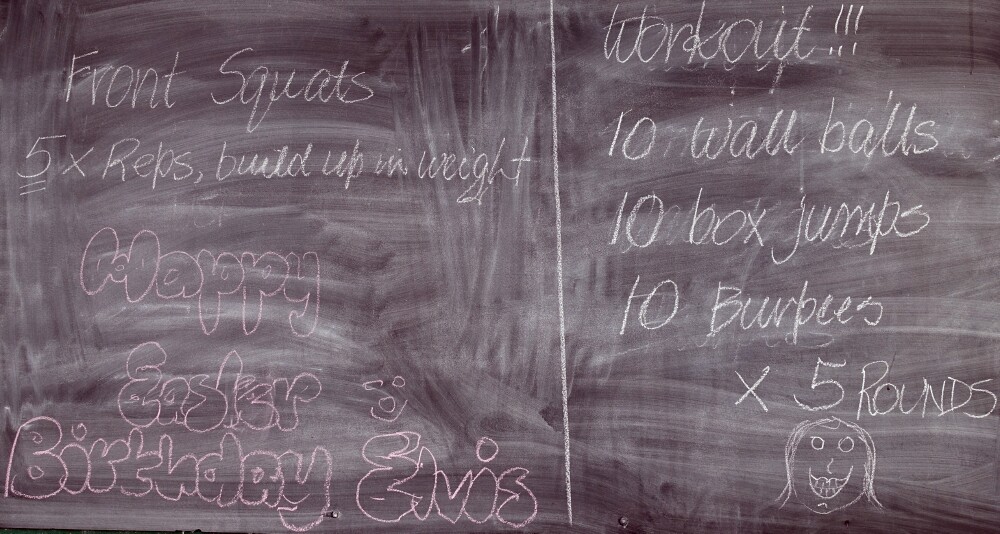 Front Squats
5 x Reps, build up in weight
Happy
Easter :)
Birthday Elvis
Workout!!!
10 wall balls
10 box jumps
10 Burpees
x 5 ROUNDS